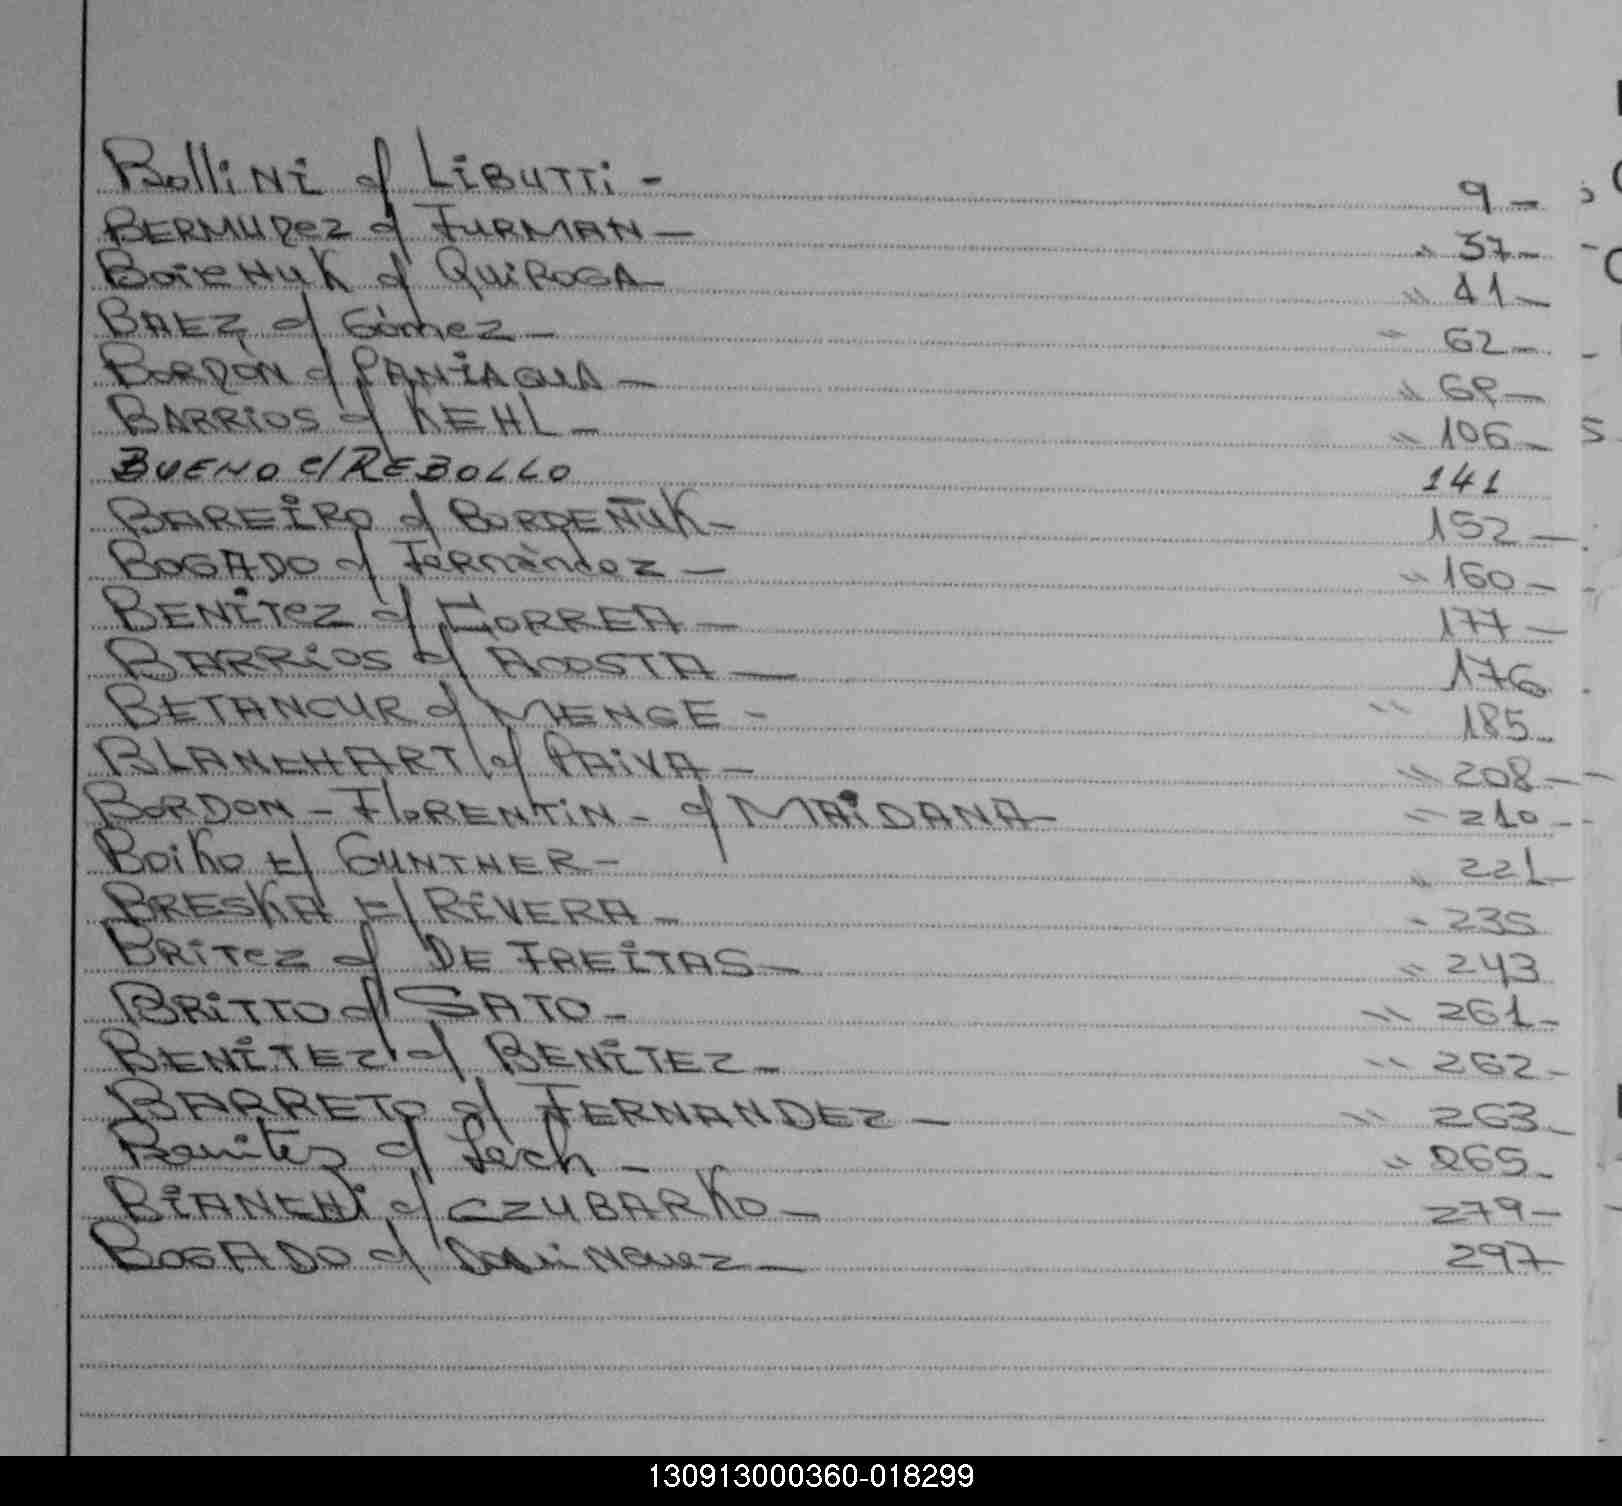 Bollini c/ LiBUTTi - 9 -
BERMUDez c/ FURMAN - " 37 -
BoieNuK c/ QUiROGA - " 41 -
BAEZ c/ Gómez - " 62 -
BORDÓN c/ PANiAGUA - " 69 -
BARRiOS c/ KEHL - " 106 -
BUENO c/ REBOLLO 141
BAREiRO c/ BORDEÑUK - 152 -
BOGADO c/ Fernández - " 160 -
BENiTez c/ CORREA - 177 -
BARRiOS c/ ACOSTA - 176
BETANCUR c/ MENGE - " 185 -
BLANCHART c/ PAiVA - " 208 -
BORDON - FlORENTiN - c/ MAiDANA - " 210 -
BoiKo c/ GUNTHER - " 221 -
BRESKA c/ RiVERA - " 235
BRiTez c/ DE FREiTAS - " 243
BRiTTO c/ SATO - " 261 -
BENiTEZ c/ BENiTEZ - " 262 -
BARRETO c/ FERNANDEZ - " 263 -
Benitez c/ Lech - " 265 -
BiANCHi c/ CZUBARKO - 279 -
BOGADO c/ DomiNguez - 297 -
130913000360-018299